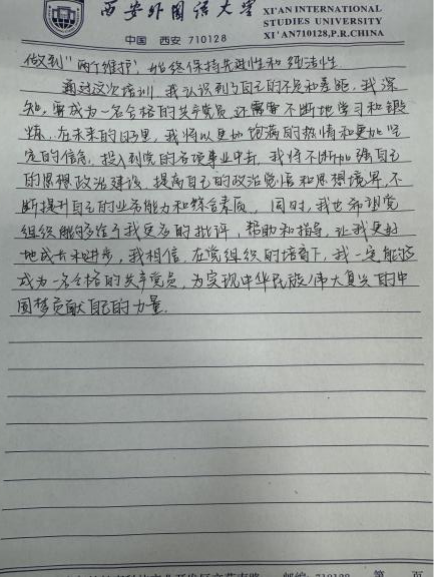 西安外国语大学
XI'AN INTERNATIONAL
STUDIES UNIVERSITY
中国 西安 710128
XI'AN710128,P.R.CHINA
做到"两个维护",始终保持先进性和纯洁性
通过这次培训,我认识到了自己的不足和差距,我深
知,要成为一名合格的共产党员,还需要不断地学习和锻
炼。在未来的日子里,我将以更加饱满的热情和更加坚
定的信念,投入到党的各项事业中去,我将不断加强自己
的思想政治建设,提高自己的政治觉悟和思想境界,不
断提升自己的业务能力和综合素质。同时,我也希望党
组织能够给予我更多的批评,帮助和指导,让我更好
地成长和进步,我相信,在党组织的培育下,我一定能够
成为一名合格的共产党员,为实现中华民族伟大复兴的中
国梦贡献自己的力量。
邮编: 710128
第 页